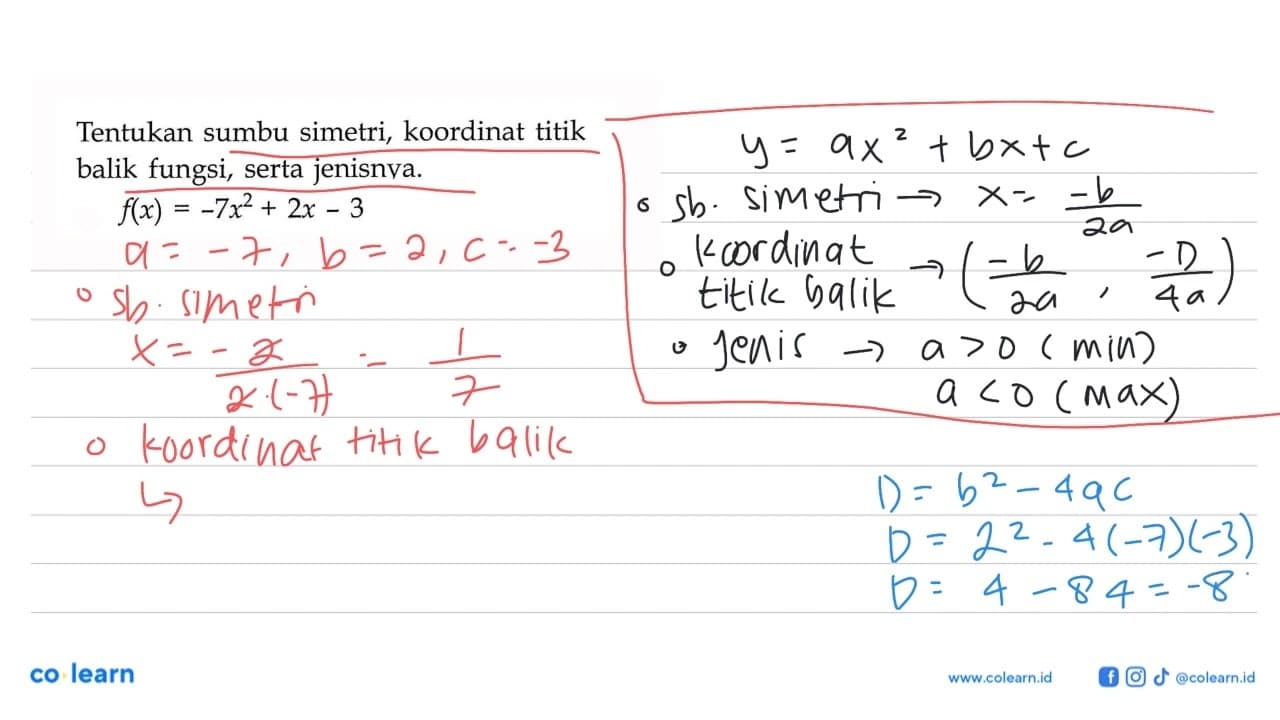 Tentukan sumbu simetri, koordinat titik
balik fungsi, serta jenisnya.
f(x) = -7x² + 2x - 3
a = -7, b = 2, c = -3
o sb. simetri
x = -2/2·(-7) = 1/7
o koordinat titik balik
↳
y = ax² + bx + c
o sb. simetri → x = -b/2a
o koordinat titik balik → (-b/2a , -D/4a)
o jenis → a > 0 (min)
a < 0 (max)
D = b² - 4ac
D = 2² - 4(-7)(-3)
D = 4 - 84 = -8
co·learn
www.colearn.id
@colearn.id